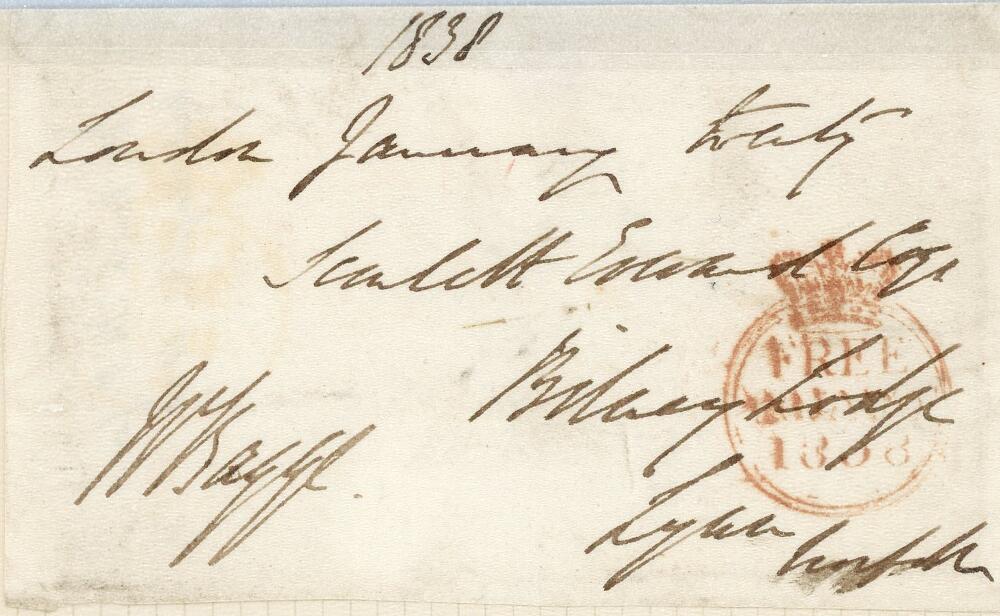 1838
London January twenty
Scarlett Everard Esqr
Bilney Lodge
W Bagge.
Lynn
Norfolk
FREE
1838